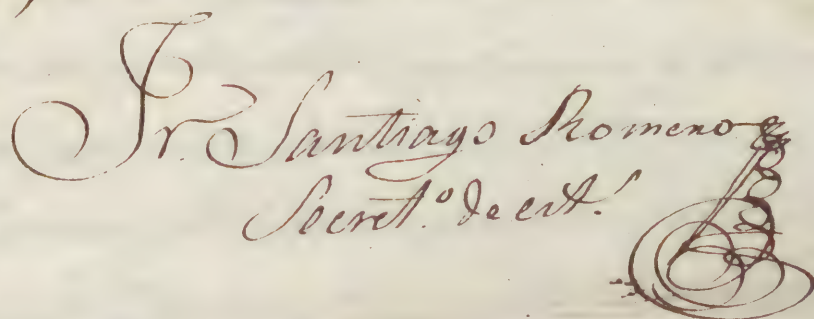 Fr. Santiago Romero
Secret.º de est.